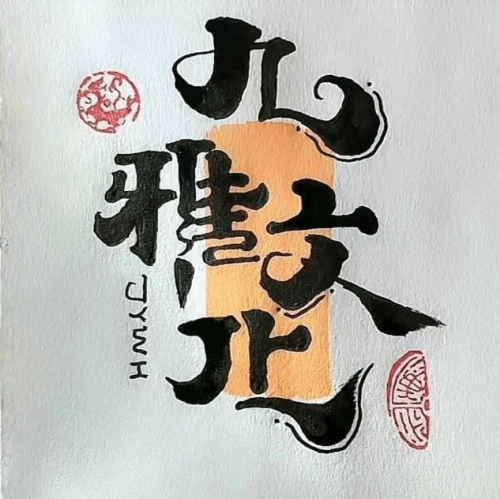 九
雅文
化
JYWH